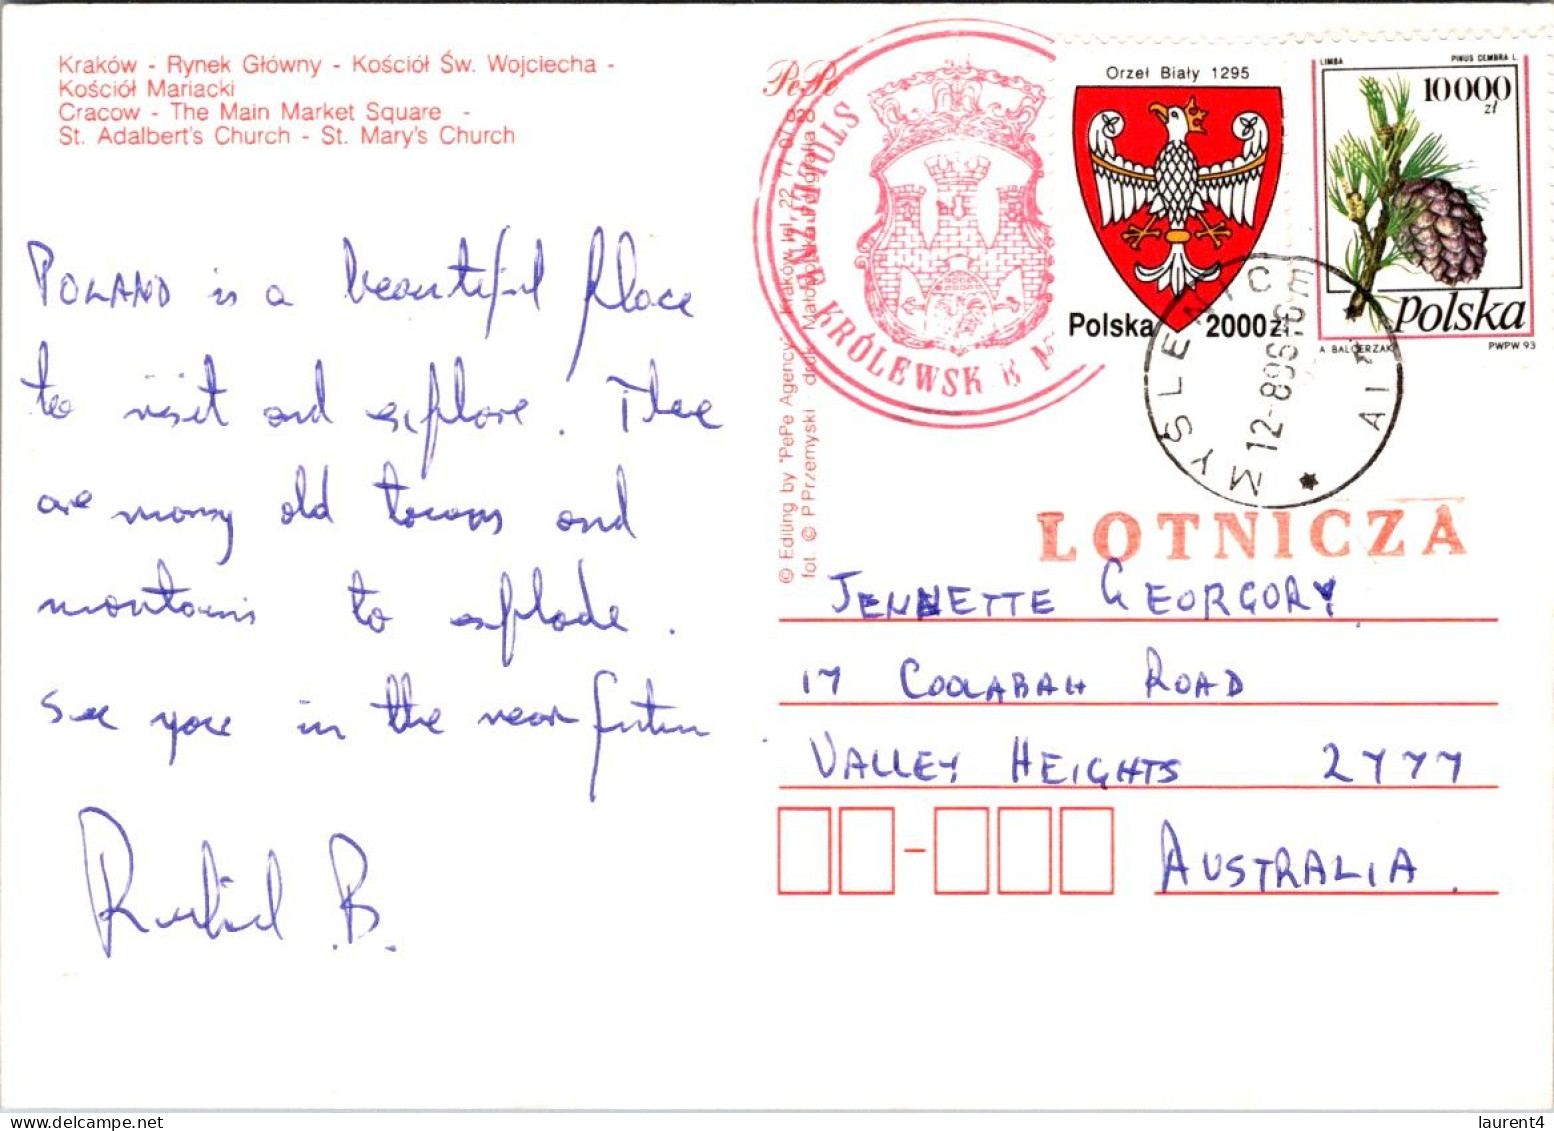 Kraków - Rynek Główny - Kościół Św. Wojciecha -
Kościół Mariacki
Cracow - The Main Market Square -
St. Adalbert's Church - St. Mary's Church
POLAND is a beautiful place
to visit and explore. There
are many old towns and
mountains to explode.
See you in the near future
B.
PePe
020
© Editing by "PePe Agency", Kraków, tel. 22 77 0
fot. © P Przemyski druk. Małopolska Poligrafia
STOŁECZNE KRÓLEWSKIE M
Orzeł Biały 1295
Polska 2000 zł
LIMBA PINUS CEMBRA L.
10000 zł
Polska
A BALCERZAK PWPW 93
MYŚLENIC
12-896
LOTNICZA
JENNETTE GEORGORY
17 COOLABAH ROAD
VALLEY HEIGHTS 2777
AUSTRALIA.
laurent4